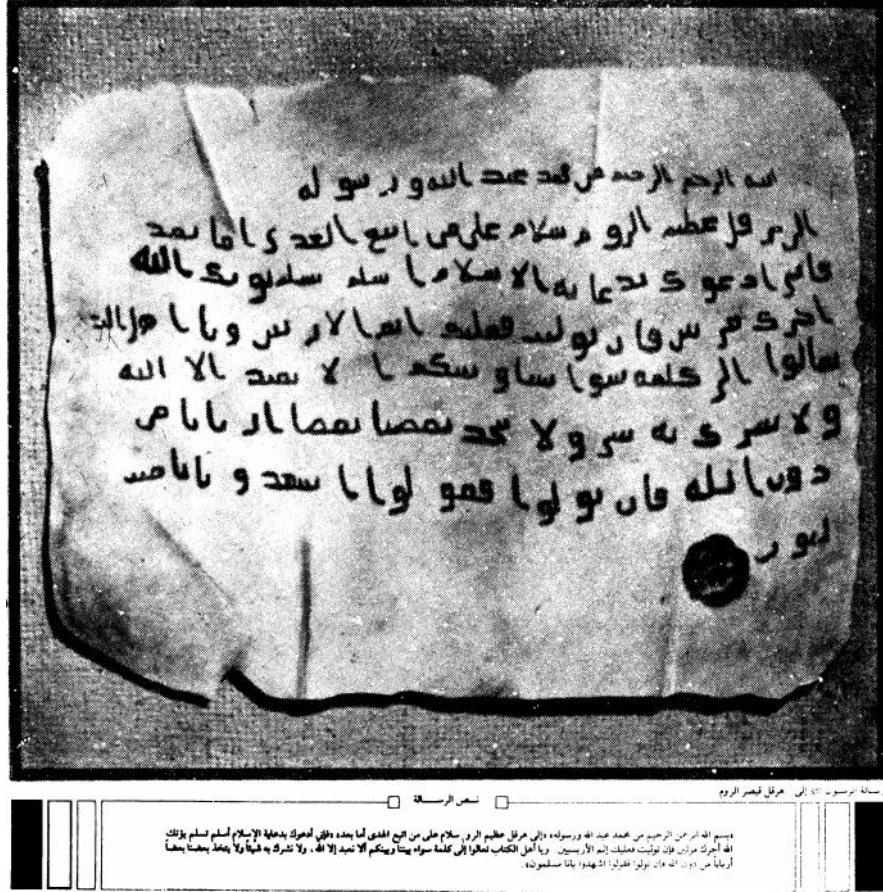 الله الرحمن الرحيم من محمد عبد الله و رسوله
الى هرقل عظيم الروم سلام على من اتبع الهدى اما بعد
فانى ادعوك بدعاية الاسلام اسلم تسلم يوتك الله
اجرك مرتين فان توليت فعليك اثم الاريسين ويا اهل
تعالوا الى كلمة سوا بيننا وبينكم الا نعبد الا الله
ولا نشرك به ولا يتخذ بعضنا بعضا اربابا من
دون الله فان تولوا فقولوا اشهدوا بانا
رسالة الرسول ﷺ إلى هرقل قيصر الروم
نــص الرســالة
«بسم الله الرحمن الرحيم من محمد عبد الله ورسوله» «إلى هرقل عظيم الروم سلام على من اتبع الهدى أما بعد» «فإني أدعوك بدعاية الإسلام أسلم تسلم يؤتك
الله أجرك مرتين فإن توليت فعليك إثم الأريسيين. ويا أهل الكتاب تعالوا إلى كلمة سواء بيننا وبينكم ألا نعبد إلا الله، ولا نشرك به شيئاً ولا يتخذ بعضنا بعضاً
أرباباً من دون الله فإن تولوا فقولوا اشهدوا بأنا مسلمون».